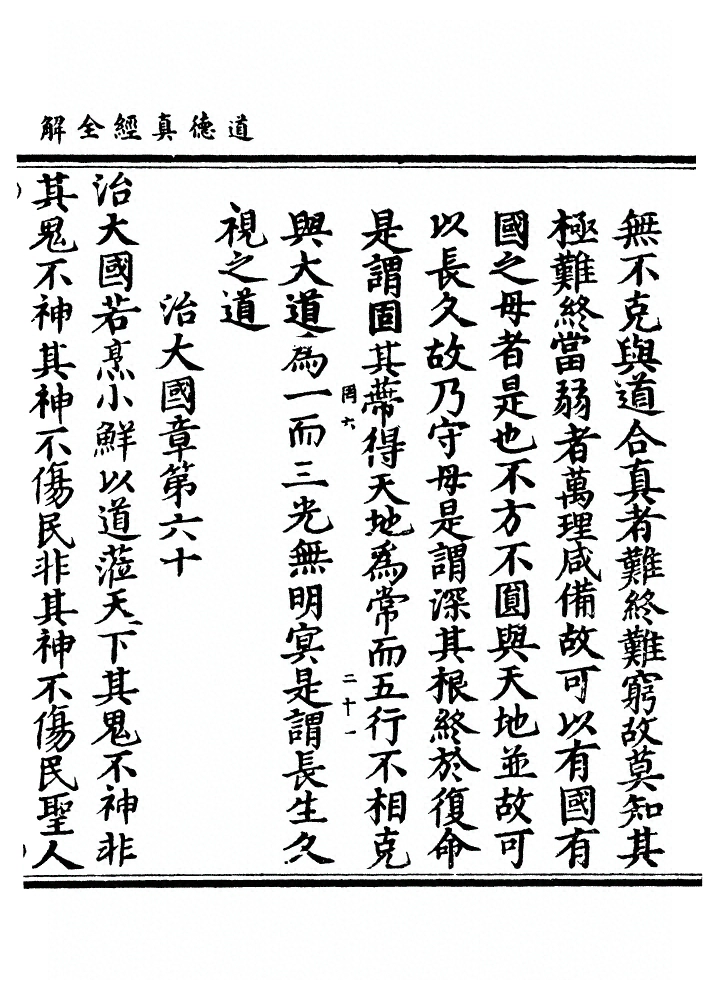 道德真經全解
無不克與道合真者難終難窮故莫知其
極難終當弱者萬理咸備故可以有國有
國之母者是也不方不圓與天地並故可
以長久故乃守母是謂深其根終於復命
是謂固其蔕得天地爲常而五行不相克
罔六
二十一
與大道爲一而三光無明冥是謂長生久
視之道
治大國章第六十
治大國若烹小鮮以道蒞天下其鬼不神非
其鬼不神其神不傷民非其神不傷民聖人